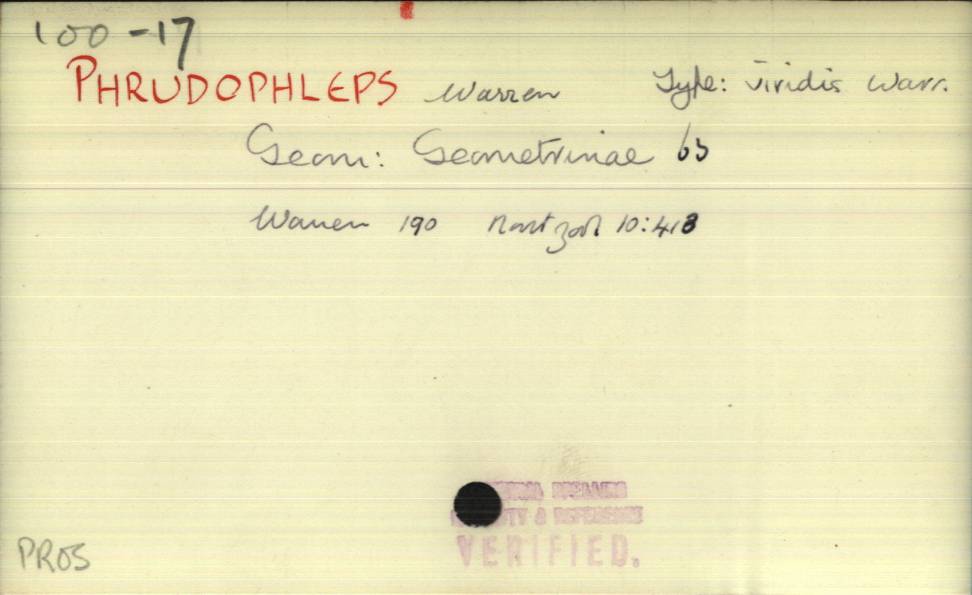 100-17
PHRUDOPHLEPS Warren Type: viridis Warr.
Geom: Geometrinae b3
Warren 190 Novit zool 10:413
SPELLING
& REFERENCE
VERIFIED.
PROS